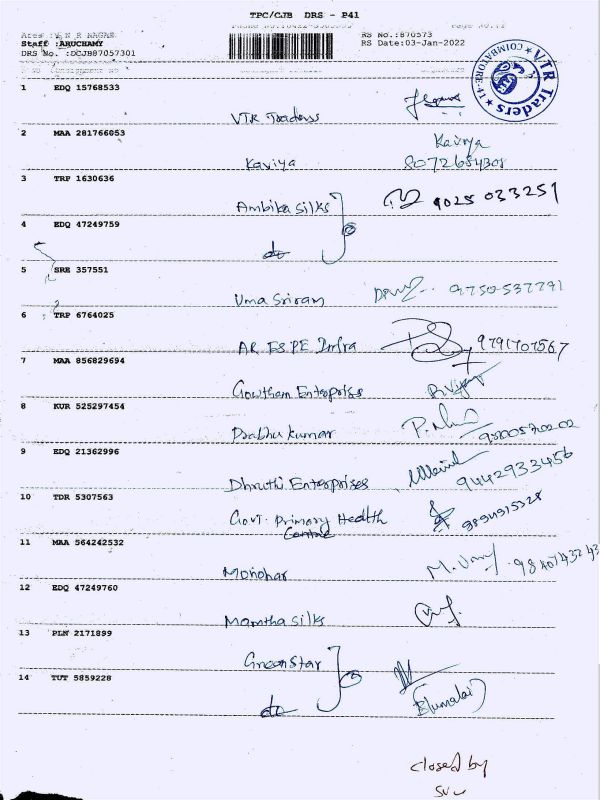 TPC/CJB DRS - P41
RS No.:870573
Staff :ARUCHAMY
RS Date:03-Jan-2022
DRS No. :DCJB87057301
VTR Traders
COIMBATORE-14
1 EDQ 15768533
VTR Traders
2 MAA 281766053
Kaviya
Kaviya
3 TRP 1630636
Ambika silks
9025 033251
4 EDQ 47249759
do
5 SRE 357551
Uma Sriram
9750-537771
6 TRP 6764025
AR ESPE Infra
9791707567
7 MAA 856829694
Gowtham Enterprises
8 KUR 525297454
Prabhu kumar
9 EDQ 21362996
Dhruthi Enterprises
9442933456
10 TDR 5307563
Govt. Primary Health
Centre
9894915328
11 MAA 564242532
Monohar
12 EDQ 47249760
Mamtha silks
13 PLN 2171899
Green Star
14 TUT 5859228
do
closed by